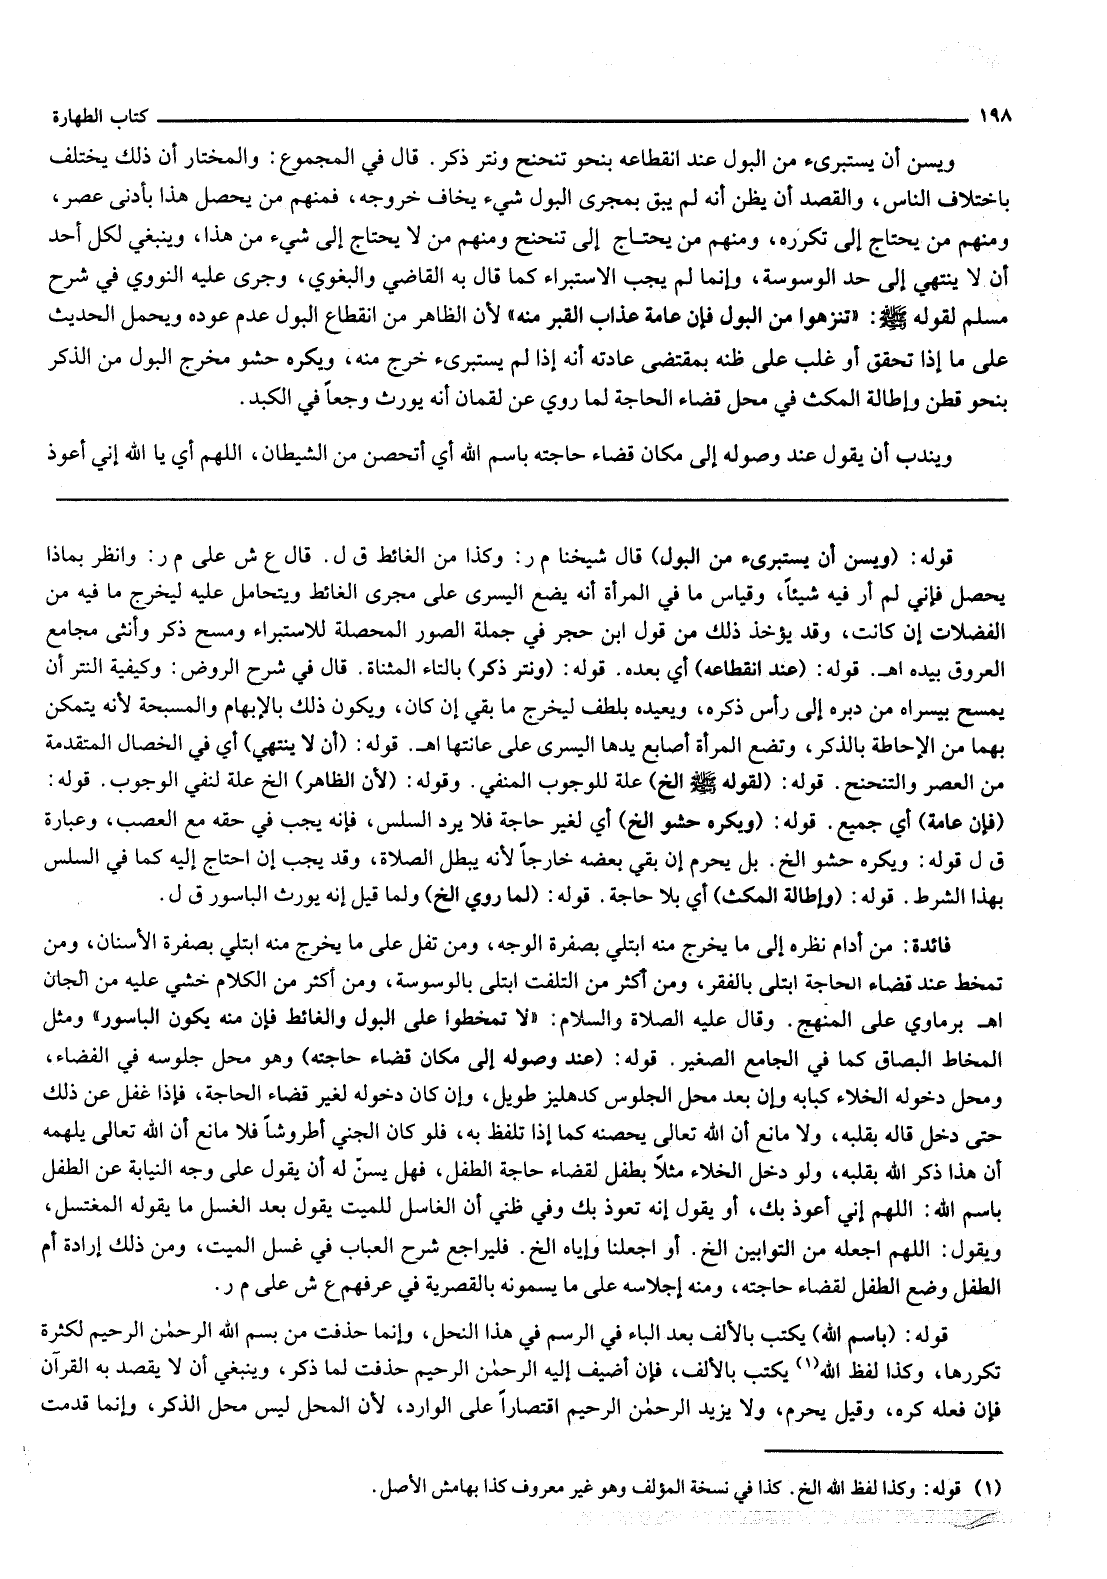 ١٩٨ كتاب الطهارة
ويسن أن يستبرىء من البول عند انقطاعه بنحو تنحنح ونتر ذكر. قال في المجموع: والمختار أن ذلك يختلف
باختلاف الناس، والقصد أن يظن أنه لم يبق بمجرى البول شيء يخاف خروجه، فمنهم من يحصل هذا بأدنى عصر،
ومنهم من يحتاج إلى تكرره، ومنهم من يحتاج إلى تنحنح ومنهم من لا يحتاج إلى شيء من هذا، وينبغي لكل أحد
أن لا ينتهي إلى حد الوسوسة، وإنما لم يجب الاستبراء كما قال به القاضي والبغوي، وجرى عليه النووي في شرح
مسلم لقوله ﷺ: «تنزهوا من البول فإن عامة عذاب القبر منه» لأن الظاهر من انقطاع البول عدم عوده ويحمل الحديث
على ما إذا تحقق أو غلب على ظنه بمقتضى عادته أنه إذا لم يستبرىء خرج منه، ويكره حشو مخرج البول من الذكر
بنحو قطن وإطالة المكث في محل قضاء الحاجة لما روي عن لقمان أنه يورث وجعاً في الكبد.
ويندب أن يقول عند وصوله إلى مكان قضاء حاجته باسم الله أي أتحصن من الشيطان، اللهم أي يا الله إني أعوذ
قوله: (ويسن أن يستبرىء من البول) قال شيخنا م ر: وكذا من الغائط ق ل. قال ع ش على م ر: وانظر بماذا
يحصل فإني لم أر فيه شيئاً، وقياس ما في المرأة أنه يضع اليسرى على مجرى الغائط ويتحامل عليه ليخرج ما فيه من
الفضلات إن كانت، وقد يؤخذ ذلك من قول ابن حجر في جملة الصور المحصلة للاستبراء ومسح ذكر وأنثى مجامع
العروق بيده اهـ. قوله: (عند انقطاعه) أي بعده. قوله: (ونتر ذكر) بالتاء المثناة. قال في شرح الروض: وكيفية النتر أن
يمسح بيسراه من دبره إلى رأس ذكره، ويعيده بلطف ليخرج ما بقي إن كان، ويكون ذلك بالإبهام والمسبحة لأنه يتمكن
بهما من الإحاطة بالذكر، وتضع المرأة أصابع يدها اليسرى على عانتها اهـ. قوله: (أن لا ينتهي) أي في الخصال المتقدمة
من العصر والتنحنح. قوله: (لقوله ﷺ الخ) علة للوجوب المنفي. وقوله: (لأن الظاهر) الخ علة لنفي الوجوب. قوله:
(فإن عامة) أي جميع. قوله: (ويكره حشو الخ) أي لغير حاجة فلا يرد السلس، فإنه يجب في حقه مع العصب، وعبارة
ق ل قوله: ويكره حشو الخ. بل يحرم إن بقي بعضه خارجاً لأنه يبطل الصلاة، وقد يجب إن احتاج إليه كما في السلس
بهذا الشرط. قوله: (وإطالة المكث) أي بلا حاجة. قوله: (لما روي الخ) ولما قيل إنه يورث الباسور ق ل.
فائدة: من أدام نظره إلى ما يخرج منه ابتلي بصفرة الوجه، ومن تفل على ما يخرج منه ابتلي بصفرة الأسنان، ومن
تمخط عند قضاء الحاجة ابتلى بالفقر، ومن أكثر من التلفت ابتلى بالوسوسة، ومن أكثر من الكلام خشي عليه من الجان
اهـ برماوي على المنهج. وقال عليه الصلاة والسلام: «لا تمخطوا على البول والغائط فإن منه يكون الباسور» ومثل
المخاط البصاق كما في الجامع الصغير. قوله: (عند وصوله إلى مكان قضاء حاجته) وهو محل جلوسه في الفضاء،
ومحل دخوله الخلاء كبابه وإن بعد محل الجلوس كدهليز طويل، وإن كان دخوله لغير قضاء الحاجة، فإذا غفل عن ذلك
حتى دخل قاله بقلبه، ولا مانع أن الله تعالى يحصنه كما إذا تلفظ به، فلو كان الجني أطروشاً فلا مانع أن الله تعالى يلهمه
أن هذا ذكر الله بقلبه، ولو دخل الخلاء مثلاً بطفل لقضاء حاجة الطفل، فهل يسنّ له أن يقول على وجه النيابة عن الطفل
باسم الله: اللهم إني أعوذ بك، أو يقول إنه تعوذ بك وفي ظني أن الغاسل للميت يقول بعد الغسل ما يقوله المغتسل،
ويقول: اللهم اجعله من التوابين الخ. أو اجعلنا وإياه الخ. فليراجع شرح العباب في غسل الميت، ومن ذلك إرادة أم
الطفل وضع الطفل لقضاء حاجته، ومنه إجلاسه على ما يسمونه بالقصرية في عرفهم ع ش على م ر.
قوله: (باسم الله) يكتب بالألف بعد الباء في الرسم في هذا النحل، وإنما حذفت من بسم الله الرحمٰن الرحيم لكثرة
تكررها، وكذا لفظ الله(١) يكتب بالألف، فإن أضيف إليه الرحمٰن الرحيم حذفت لما ذكر، وينبغي أن لا يقصد به القرآن
فإن فعله كره، وقيل يحرم، ولا يزيد الرحمٰن الرحيم اقتصاراً على الوارد، لأن المحل ليس محل الذكر، وإنما قدمت
(١) قوله: وكذا لفظ الله الخ. كذا في نسخة المؤلف وهو غير معروف كذا بهامش الأصل.